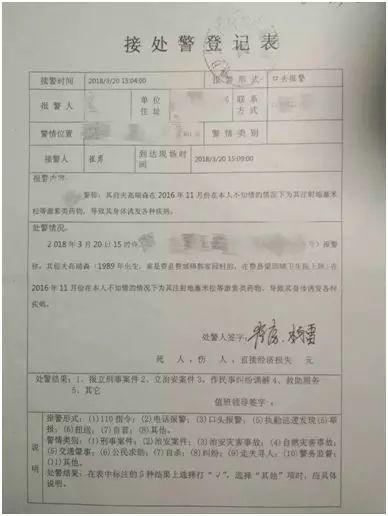 接处警登记表
接警时间 2018/3/20 15:04:00 报警形式 口头报警
报警人 单位住址 联系方式
警情位置 警情类别
接警人 崔勇 到达现场时间 2018/3/20 15:09:00
报警内容:
警称:其前夫高瑞森在2016年11月份在本人不知情的情况下为其注射地塞米
松等激素类药物,导致其身体诱发各种疾病。
处警情况:
2018年3月20日15时许 报警
称:其前夫高瑞森(1989年出生,家是费县费城
2016年11月份在本人不知情的情况下为其注射地塞米松等激素类药物,导致其身体诱发各种
疾病。
处警人签字:
死 人,伤 人,直接经济损失 元
处警结果:1、报立刑事案件 2、立治安案件 3、作民事纠纷调解 4、救助服务
5、其它
值班领导签字:
说明
报警形式:(1)110指令;(2)电话报警;(3)口头报警;(5)执勤巡逻发现(5)举
报;(6)扭送;(7)自首;(8)其他。
警情类别:(1)刑事案件;(2)治安案件;(3)治安灾害事故;(4)自然灾害事故;
(5)交通肇事;(6)公民求助;(7)自杀;(8)纠纷;(9)走失寻人;(10)警务监督;
(11)其他。
处警结果:在表中标注的5种结果上选择打"√",选择"其他"项时,应具体
说明。